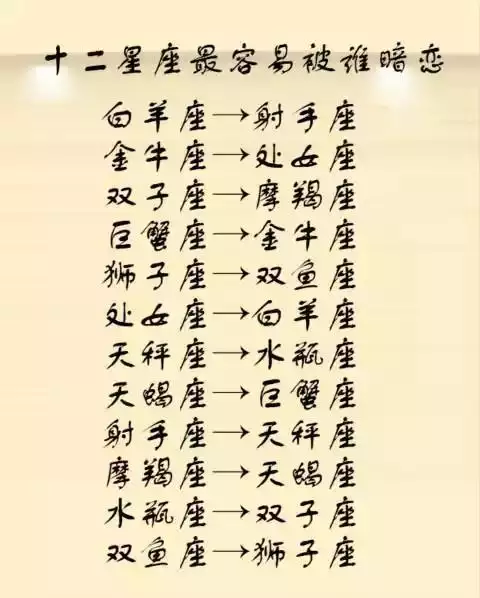 十二星座最容易被谁暗恋
白羊座→射手座
金牛座→处女座
双子座→摩羯座
巨蟹座→金牛座
狮子座→双鱼座
处女座→白羊座
天秤座→水瓶座
天蝎座→巨蟹座
射手座→天秤座
摩羯座→天蝎座
水瓶座→双子座
双鱼座→狮子座